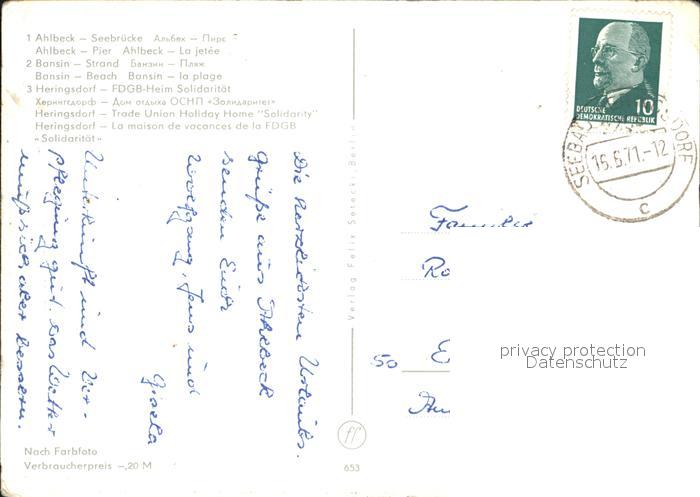 1 Ahlbeck – Seebrücke Альбек – Пирс
Ahlbeck – Pier Ahlbeck – La jetée
2 Bansin – Strand Банзин – Пляж
Bansin – Beach Bansin – la plage
3 Heringsdorf – FDGB-Heim Solidarität
Херингсдорф – Дом отдыха ОСНП «Залидаритет»
Heringsdorf – Trade Union Holiday Home "Solidarity"
Heringsdorf – La maison de vacances de la FDGB
«Solidarität»
Die herzlichsten Urlaubs-
grüße aus Ahlbeck
senden Euch
Wolfgang, Jens und
Gisela
Unterkunft und Ver-
pflegung gut. Das Wetter
muß sich aber bessern.
Nach Farbfoto
Verbraucherpreis –,20 M
Verlag Felix Setecki, Berlin
653
DEUTSCHE
DEMOKRATISCHE REPUBLIK
10
SEEBAD
SDORF
15.6.71.-12
c
Familie
Ro
50
privacy protection
Datenschutz